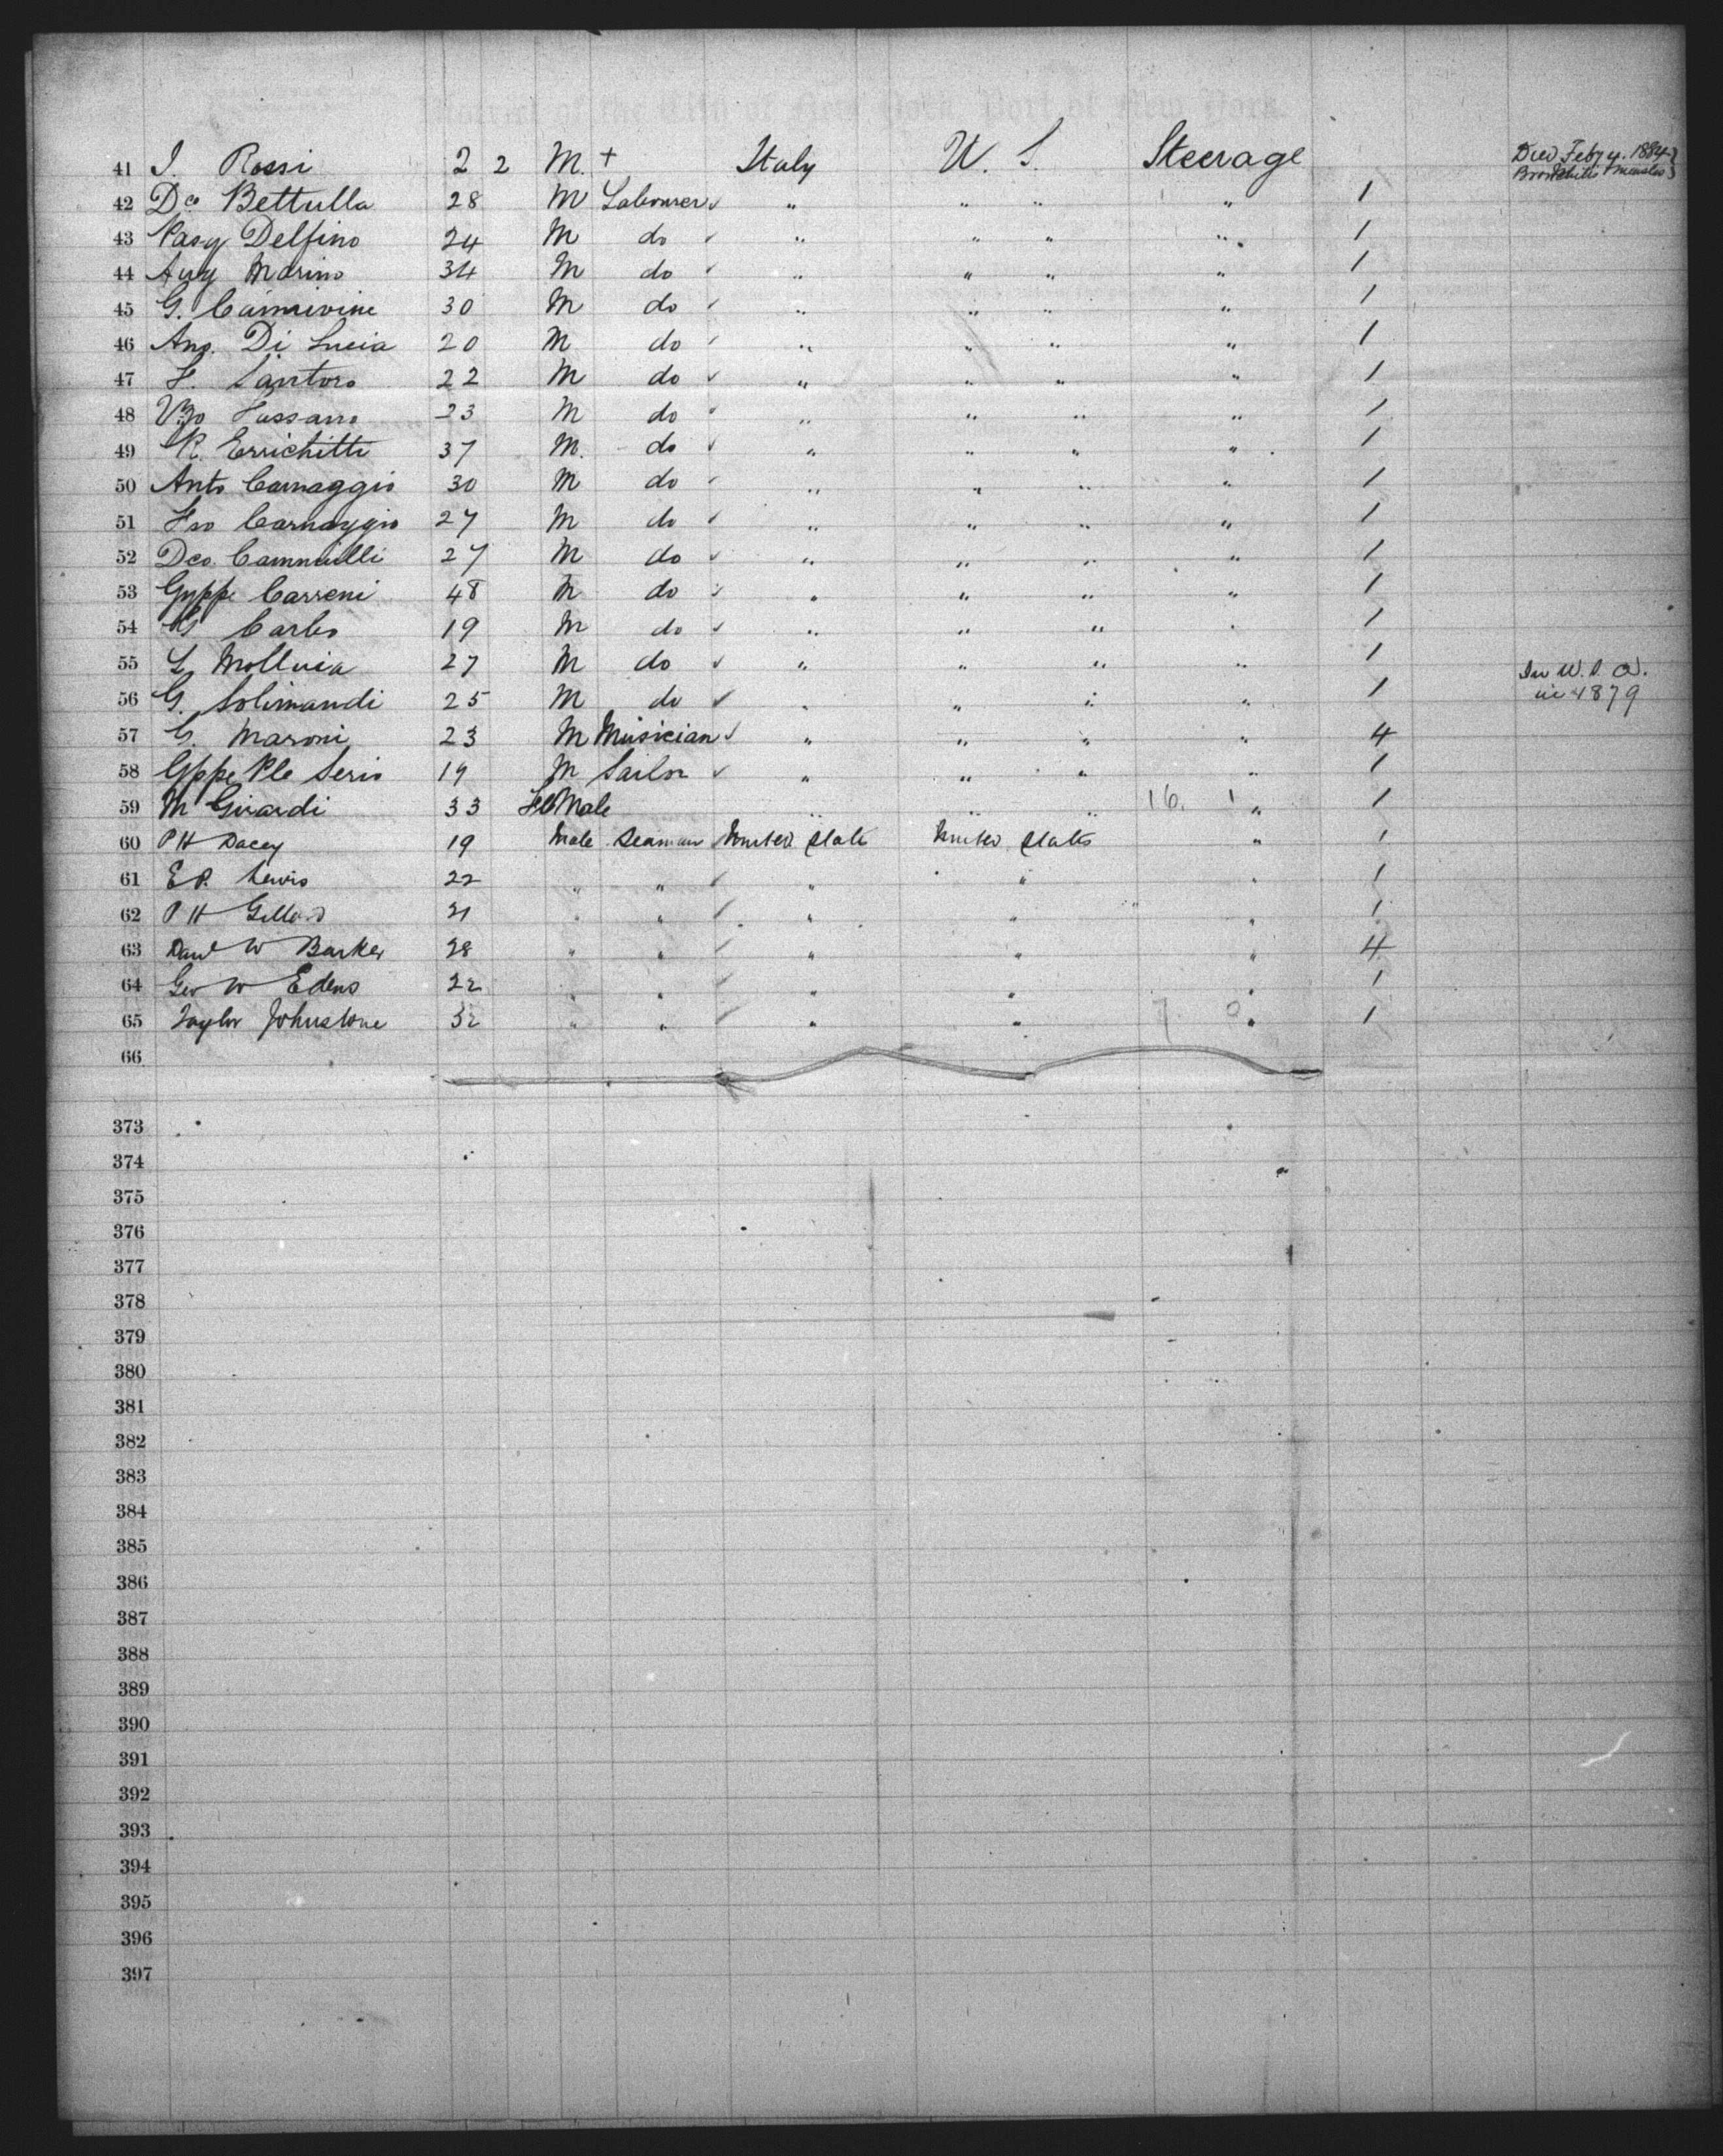 District of the City of New York, Port of New York
41 I. Rossi 2 2 M. + Italy U. S. Steerage Died Feby 4. 1884 Bronchitis Measles
42 Dco Bettulla 28 M Labourer ✓ " " " " 1
43 Pasq Delfino 24 M do ✓ " " " " 1
44 Aug Marino 34 M do ✓ " " " " 1
45 G. 30 M do ✓ " " " " 1
46 Ang. Di Lucia 20 M do ✓ " " " " 1
47 F. Santoro 22 M do ✓ " " " " 1
48 Vzo Fussaro 23 M do ✓ " " " " 1
49 R. Errichitti 37 M. do ✓ " " " " 1
50 Anto Carnaggio 30 M do ✓ " " " " 1
51 Fro Carnaggio 27 M do ✓ " " " " 1
52 Dco. 27 M do ✓ " " " " 1
53 Gyppe Carreni 48 M do ✓ " " " " 1
54 G Carbo 19 M do ✓ " " " " 1
55 L. Molluia 27 M do ✓ " " " " 1 In U. S. A.
56 G. Solimandi 25 M do ✓ " " " " 1 in 1879
57 G. Maroni 23 M Musician ✓ " " " " 4
58 Gppe Ple Serio 19 M Sailor ✓ " " " " 1
59 M Girardi 33 FeMale " " " 16. 1 " 1
60 P H Dacey 19 Male Seaman United State United States " 1
61 E P. Lewis 22 " " ✓ " " " 1
62 P H Gillard 21 " " ✓ " " " 1
63 Danl W Barker 28 " " ✓ " " " 4
64 Geo W Edens 22 " " ✓ " " " 1
65 Taylor Johnstone 32 " " ✓ " " 7 0 " 1
66
373
374
375
376
377
378
379
380
381
382
383
384
385
386
387
388
389
390
391
392
393
394
395
396
397